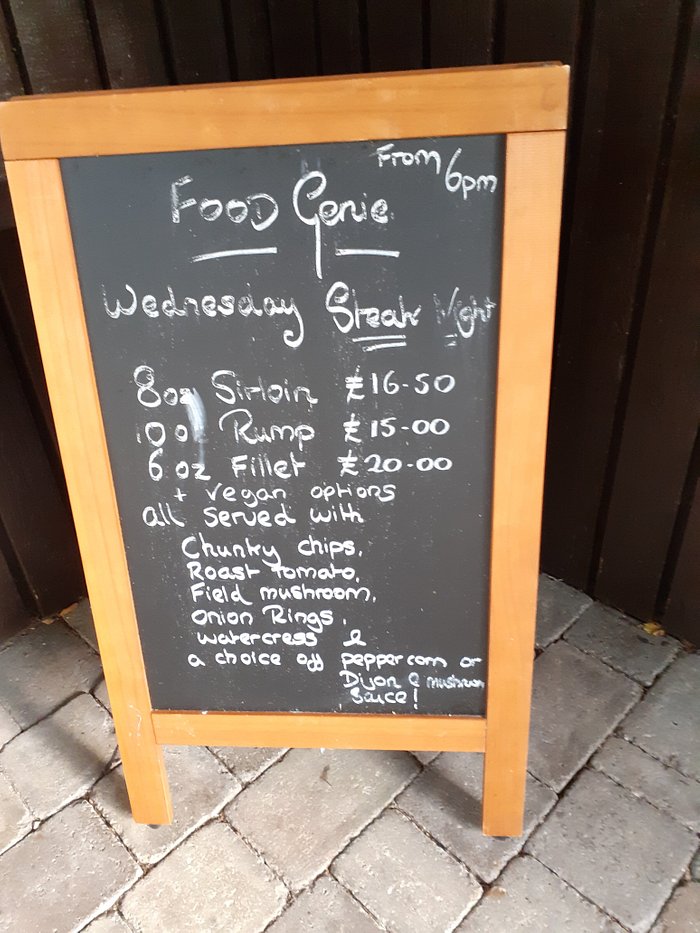 From 6pm
FOOD Genie
Wednesday Steak Night
8oz Sirloin £16-50
10 oz Rump £15-00
6 oz Fillet £20-00
+ vegan options
all served with
Chunky chips,
Roast tomato,
Field mushroom,
Onion Rings,
watercress &
a choice off peppercorn or
Dijon & mushroom
Sauce!